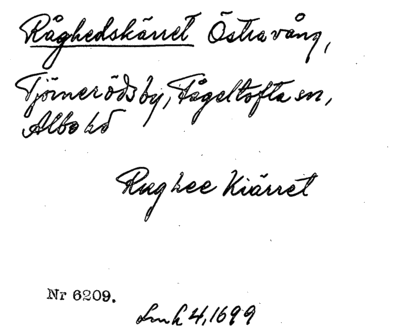 Råghedskärret Östra vång,
Tjörnerödsby, Fågeltofta sn,
Albo hd
Rughee Kiärret
Nr 6209.
Lmh 4, 1699